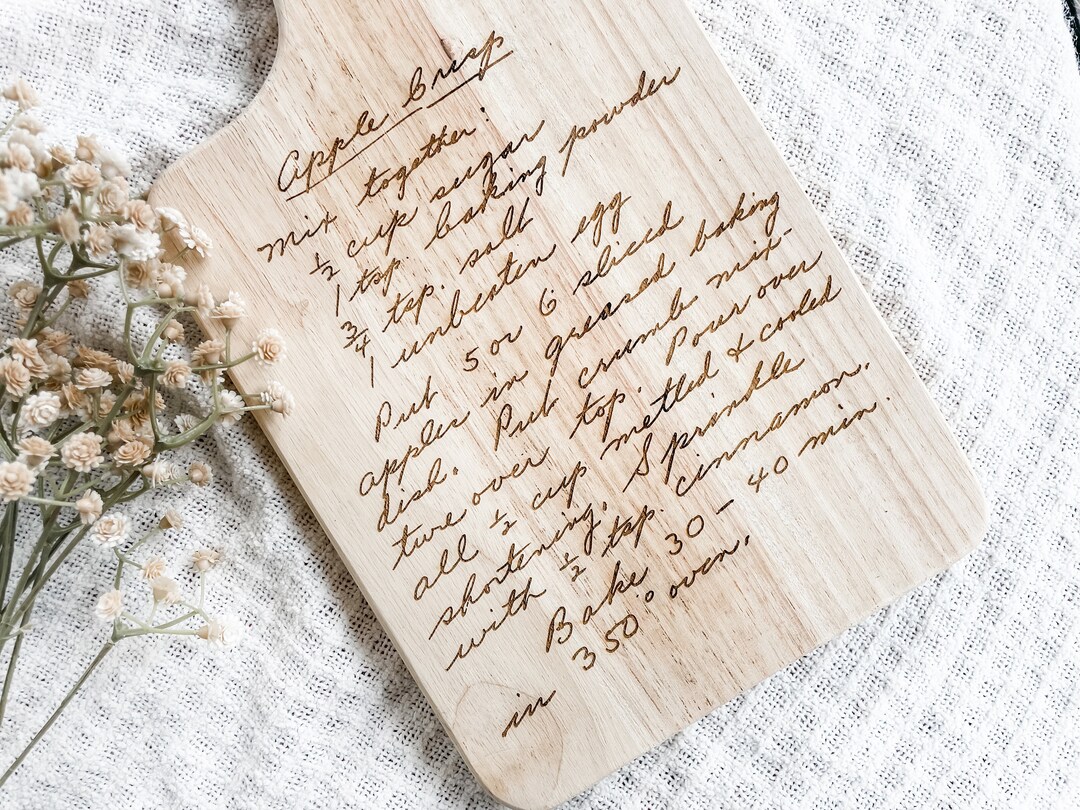 Apple Crisp
Mix together:
1/2 cup sugar
1 tsp. baking powder
3/4 tsp. salt
1 unbeaten egg
Put 5 or 6 sliced
apples in greased baking
dish. Put crumb mix-
ture over top. Pour over
all 1/2 cup metled & cooled
shortening. Sprinkle
with 1/2 tsp. cinnamon.
Bake 30 - 40 min.
in 350° oven.